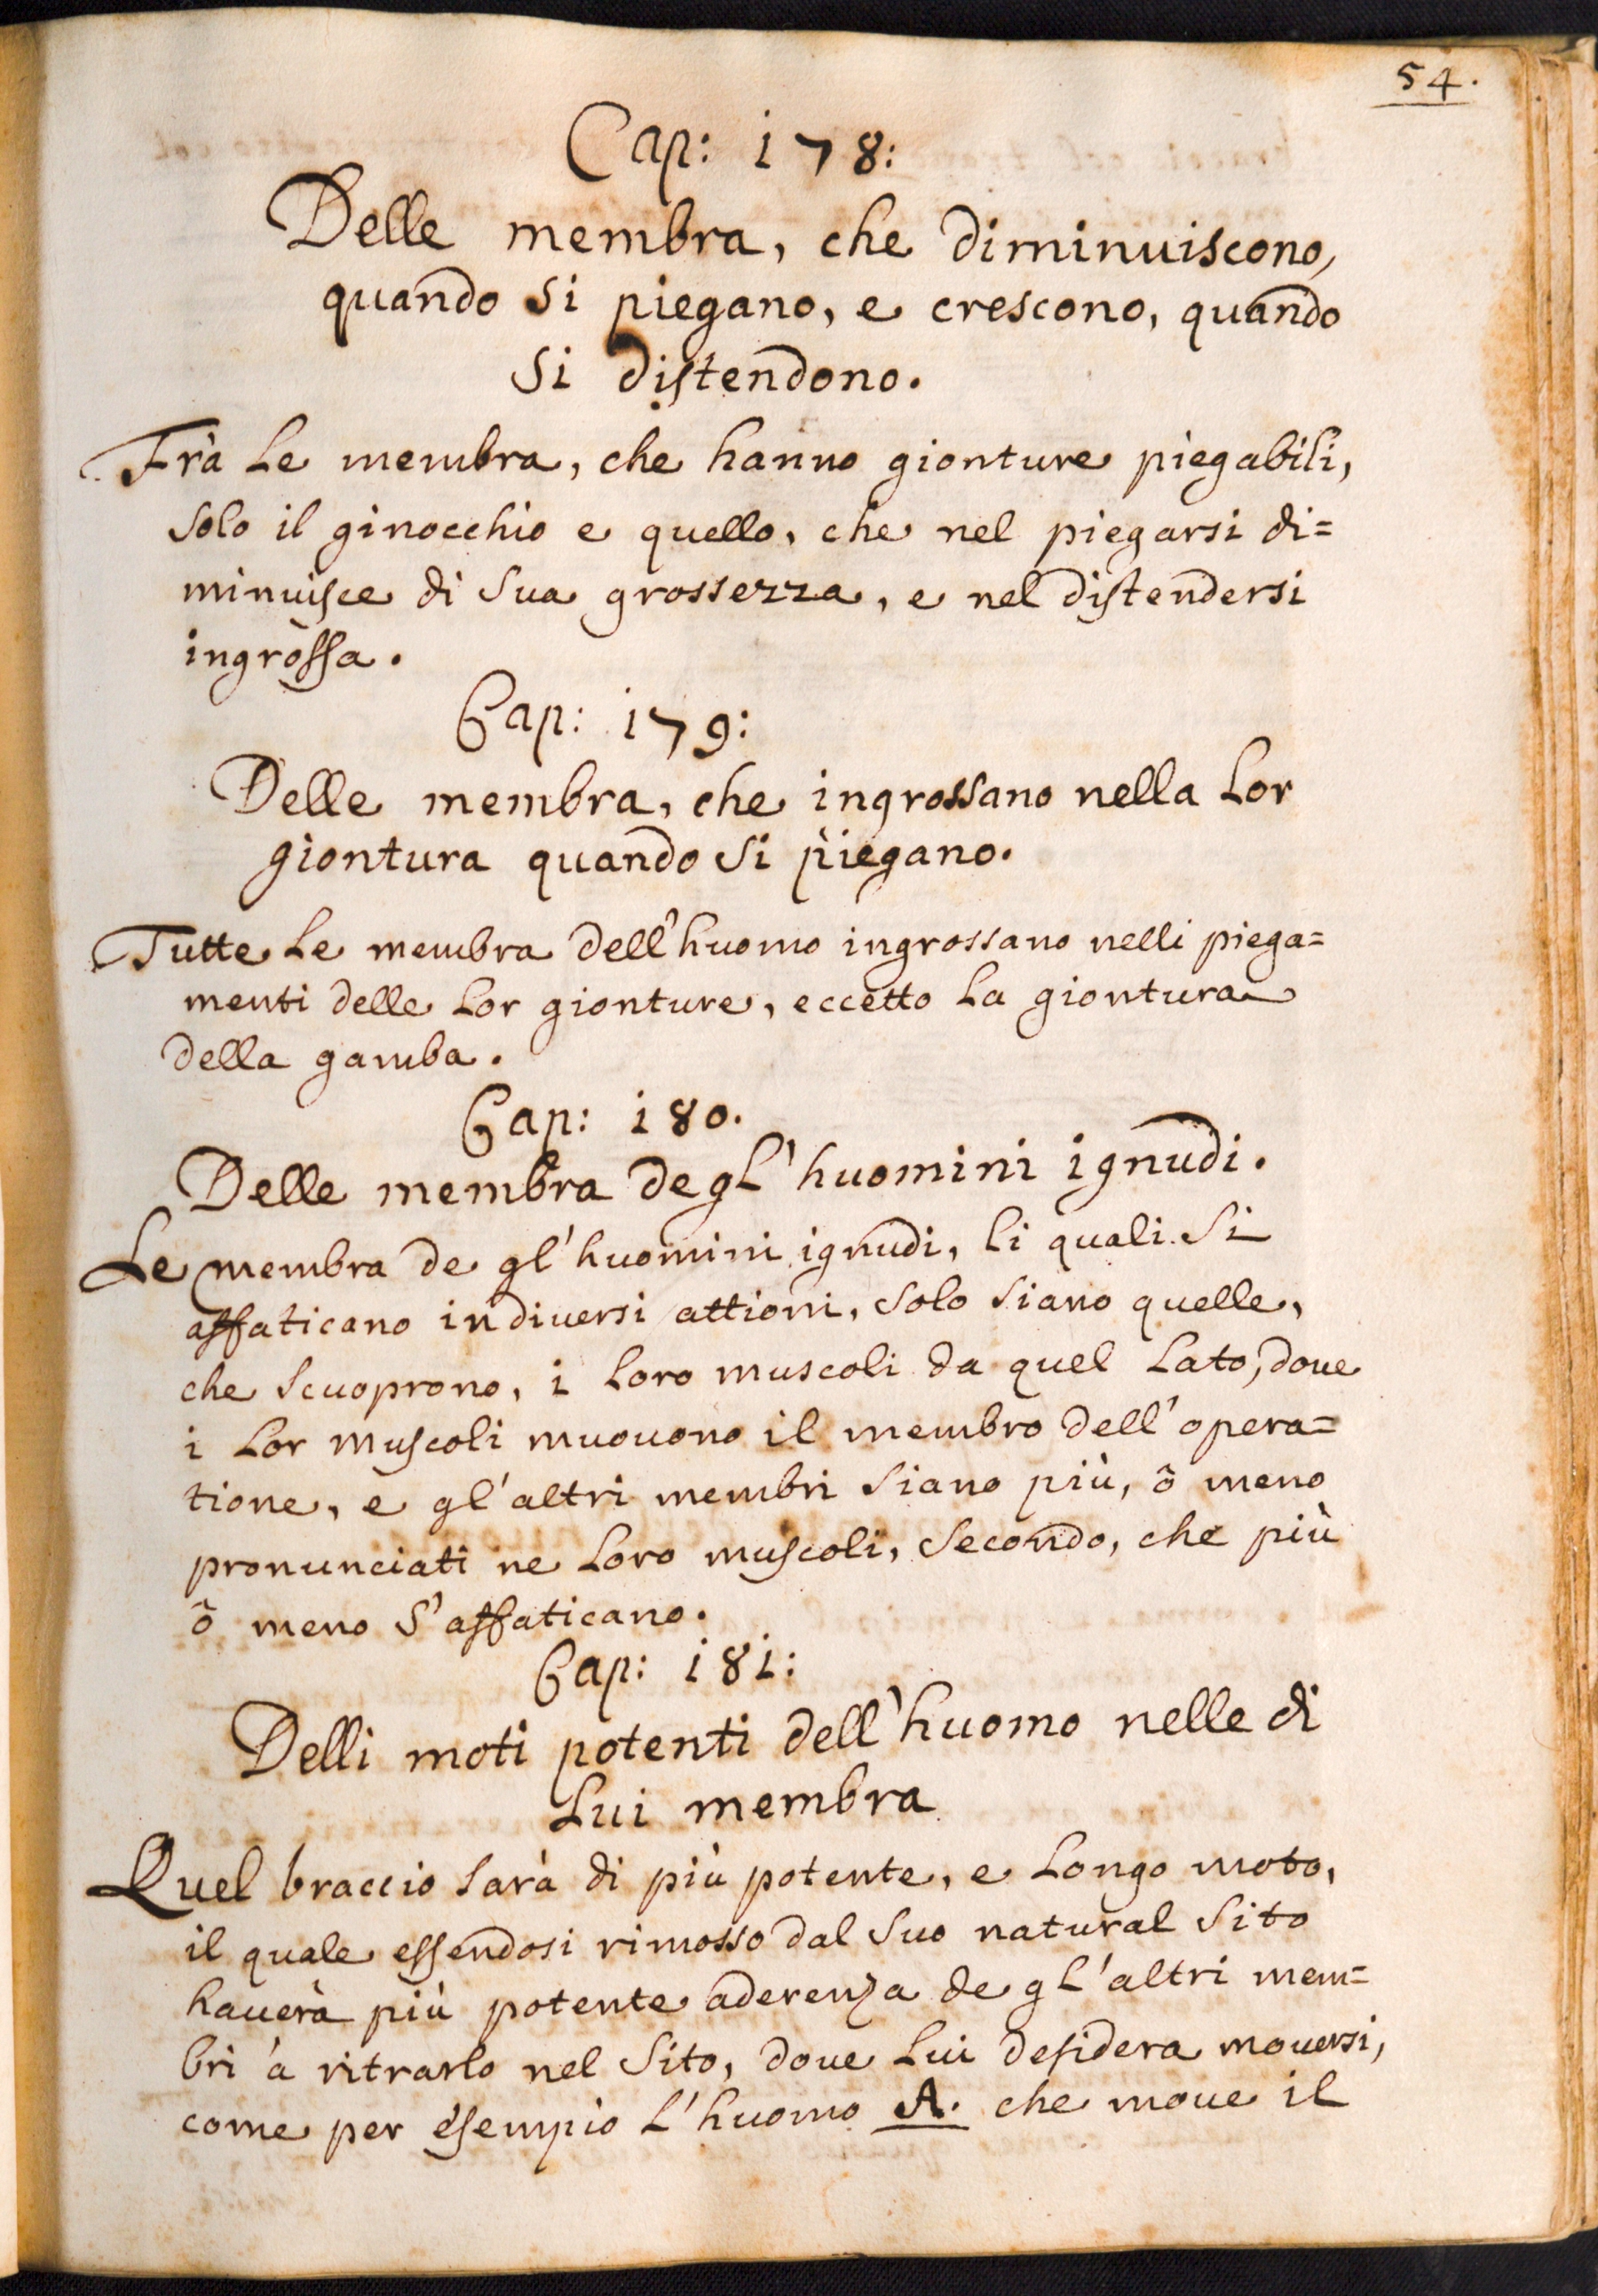 54.
Cap: 178:
Delle membra, che diminuiscono,
quando si piegano, e crescono, quando
si distendono.
Frà le membra, che hanno gionture piegabili,
solo il ginocchio e quello, che nel piegarsi di=
minuisce di sua grossezza, e nel distendersi
ingrossa.
Cap: 179:
Delle membra, che ingrossano nella lor
giontura quando si piegano.
Tutte le membra dell'huomo ingrossano nelli piega=
menti delle lor gionture, eccetto la giontura
della gamba.
Cap: 180.
Delle membra degl'huomini ignudi.
Le membra de gl'huomini ignudi, li quali si
affaticano in diversi attioni, solo siano quelle,
che scuoprono, i loro muscoli da quel lato, doue
i lor muscoli muouono il membro dell'opera=
tione, e gl'altri membri siano più, ò meno
pronunciati ne loro muscoli, secondo, che più
ò meno s'affaticano.
Cap: 181:
Delli moti potenti dell'huomo nelle di
lui membra
Quel braccio sarà di più potente, e longo moto,
il quale essendosi rimosso dal suo natural sito
hauerà più potente aderenza de gl'altri mem=
bri à ritrarlo nel sito, doue lui desidera mouersi,
come per esempio l'huomo A. che moue il